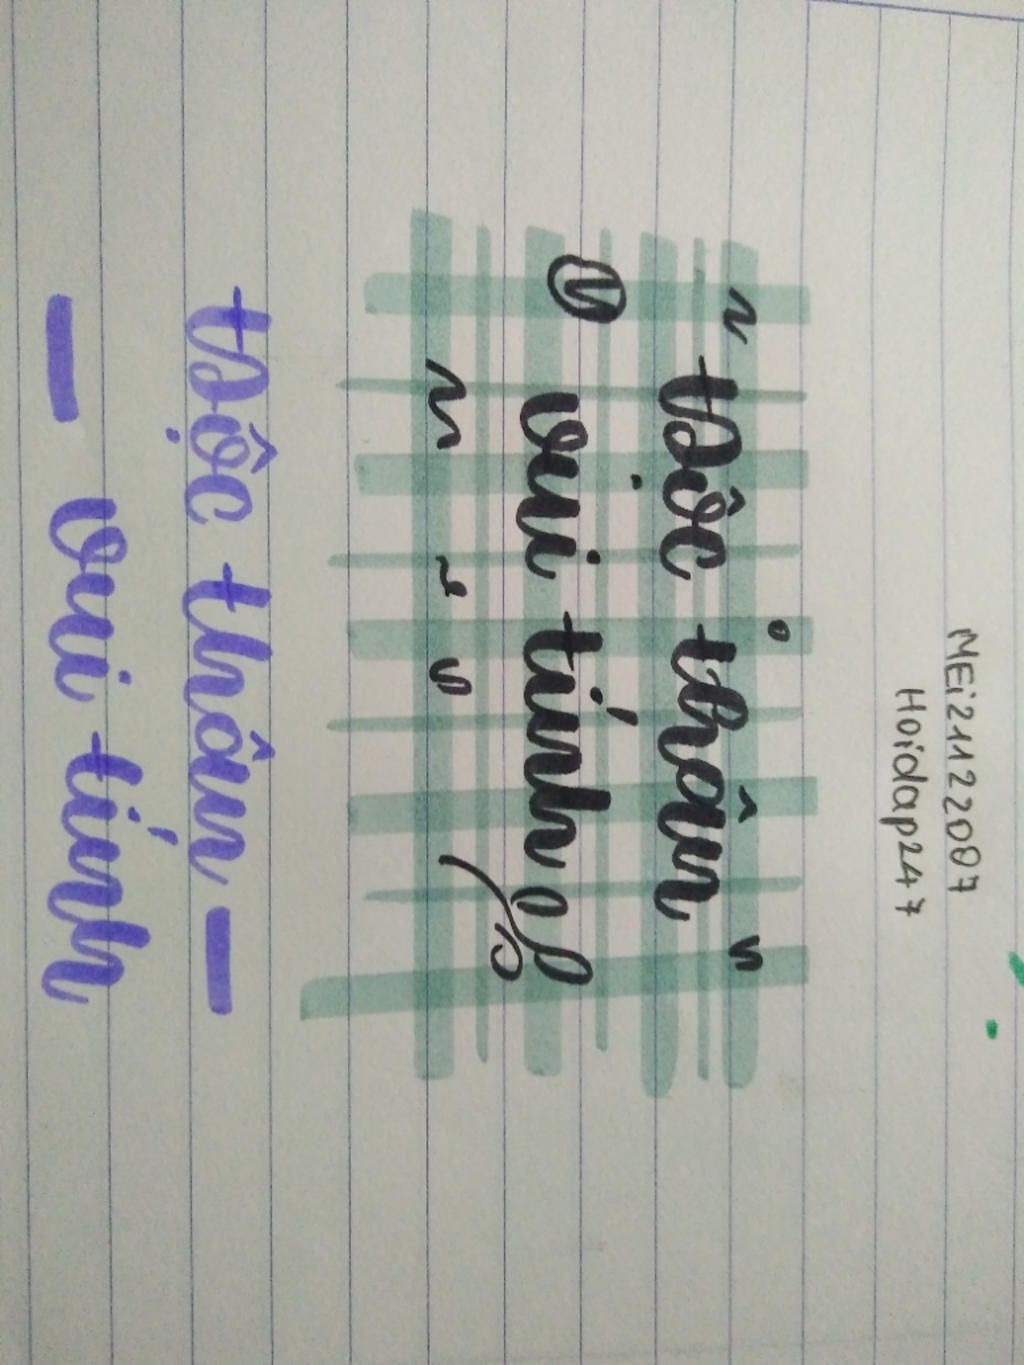 MEi21122007
Hoidap247
Độc thân
vui tính
Độc thân -
- vui tính